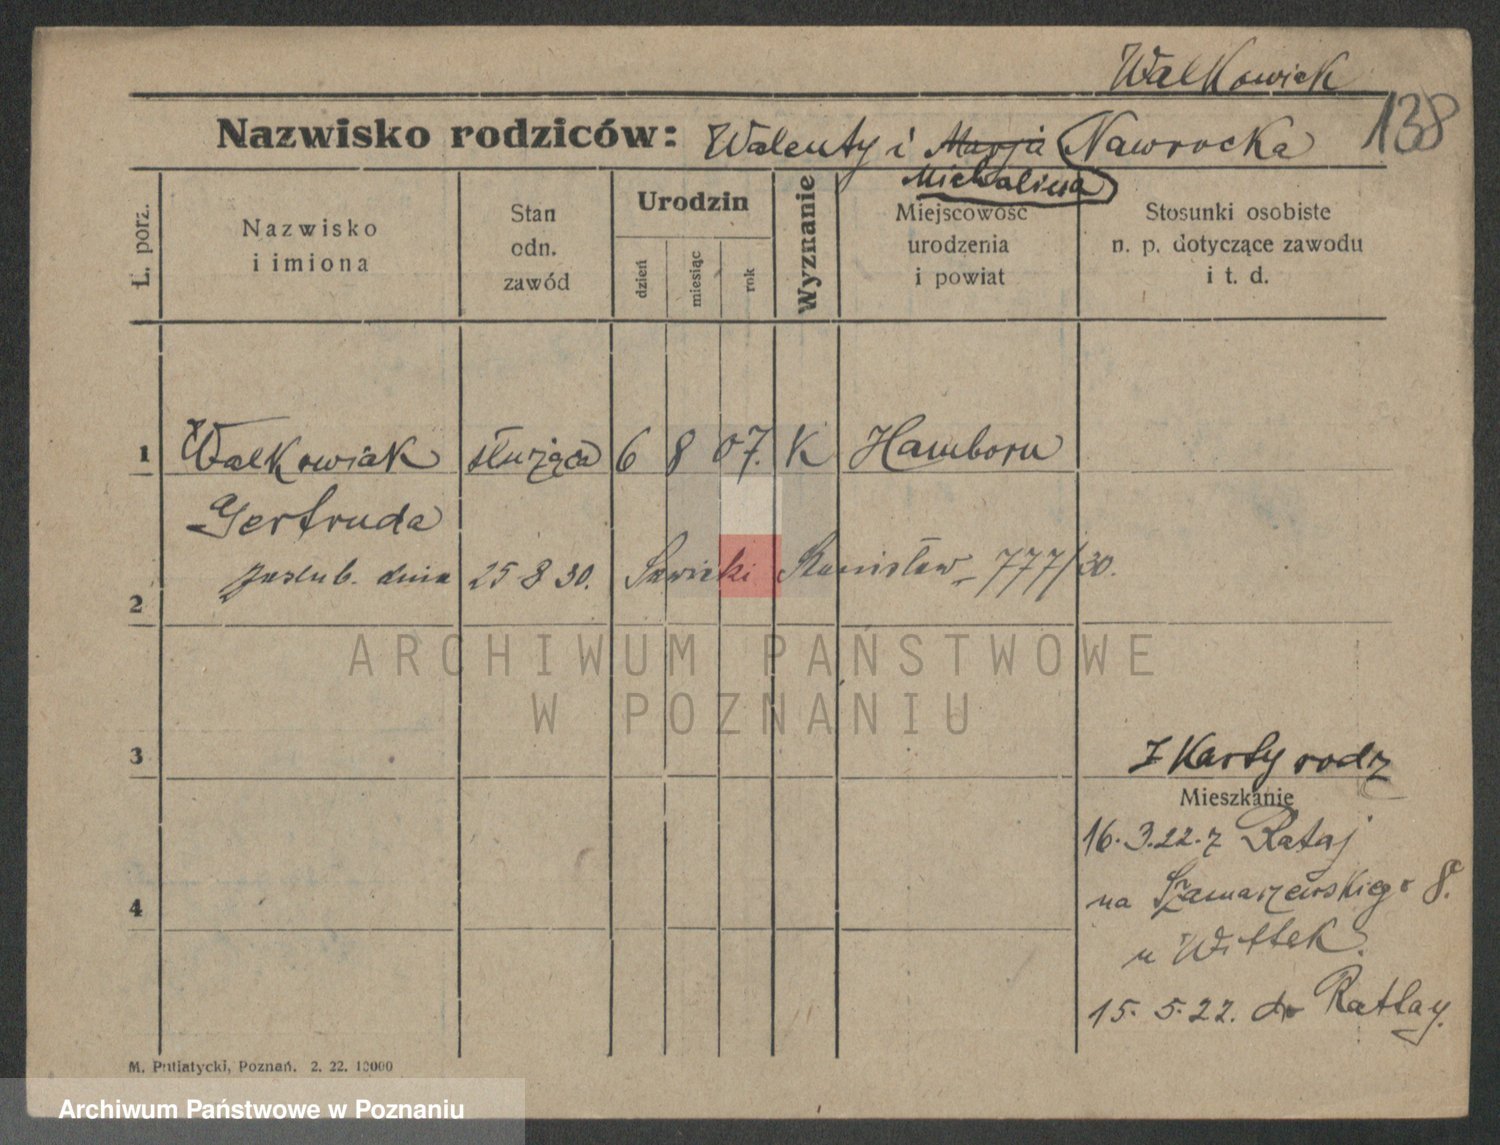 Walkowiak
138
Nazwisko rodziców: Walenty i Marja Nawrocka
Michalina
L. porz.
Nazwisko
i imiona
Stan
odn.
zawód
Urodzin
dzień
miesiąc
rok
Wyznanie
Miejscowość
urodzenia
i powiat
Stosunki osobiste
n. p. dotyczące zawodu
i t. d.
1 Walkowiak służąca 6 8 07. K Hamborn
Gertruda
2 zaslub. dnia 25 8 30. Sawicki Stanisław - 777/30.
ARCHIWUM PAŃSTWOWE
W POZNANIU
3
Z Karty rodz
Mieszkanie
16.3.22. z Rataj
na Szamarzewskiego 8.
4
u Wittek.
15.5.22. do Rattay.
M. Putiatycki, Poznań. 2. 22. 10000
Archiwum Państwowe w Poznaniu